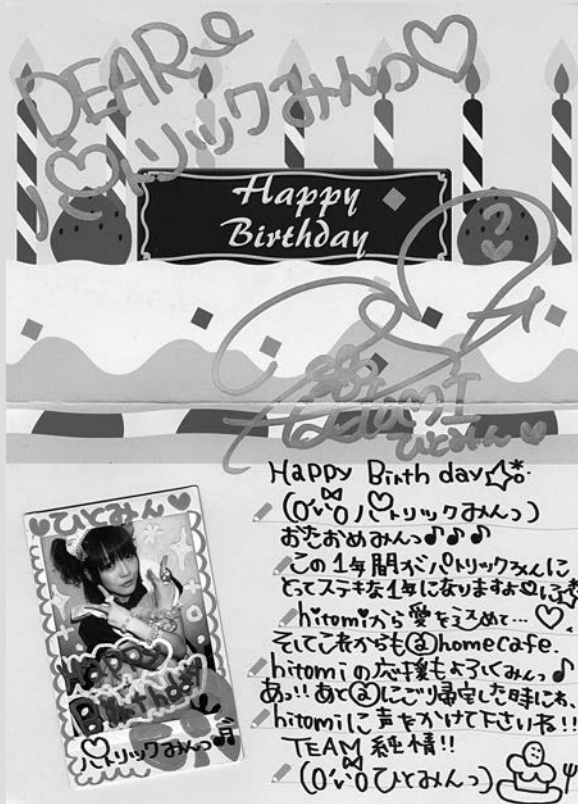 DEAR
パトリックみんっ♡
Happy
Birthday
hitomi
ひとみん♡
Happy Birth day☆
(OvO パトリックみんっ)
おたおめみんっ♪♪♪
この1年間がパトリックみんに
とってステキな1年になりますように☆
hitomiから愛をこめて…♡
そしてこれからも@homecafe.
hitomiの応援もよろしくみんっ♪
あっ!!あと@にご帰宅した時にね、
hitomiに声をかけて下さいね!!
TEAM 純情!!
(OvOひとみんっ)
♥ひとみん♥
Happy
Birthday
パトリックみんっ♬